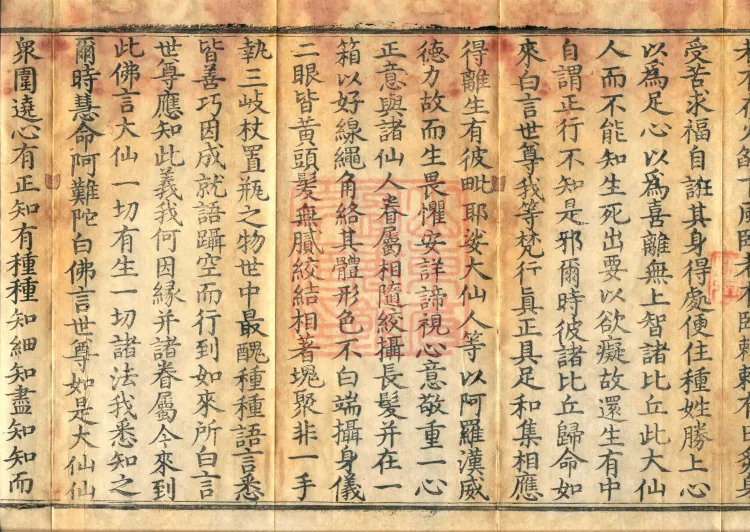 受苦求福自誑其身得處便住種姓勝上心
以為足心以為喜離無上智諸比丘此大仙
人而不能知生死出要以欲癡故還生有中
自謂正行不知是邪爾時彼諸比丘歸命如
來白言世尊我等梵行真正具足和集相應
得離生有彼毗耶娑大仙人等以阿羅漢威
德力故而生畏懼安詳諦視心意敬重一心
正意與諸仙人眷屬相隨絞攝長髮并在一
箱以好線繩角絡其體形色不白端攝身儀
二眼皆黃頭髮無膩絞結相著塊聚非一手
執三岐杖置瓶之物世中最醜種種語言悉
皆善巧因成就語躡空而行到如來所白言
世尊應知此義我何因緣并諸眷屬今來到
此佛言大仙一切有生一切諸法我悉知之
爾時慧命阿難陀白佛言世尊如是大仙仙
眾圍遶心有正知有種種知細知盡知知而